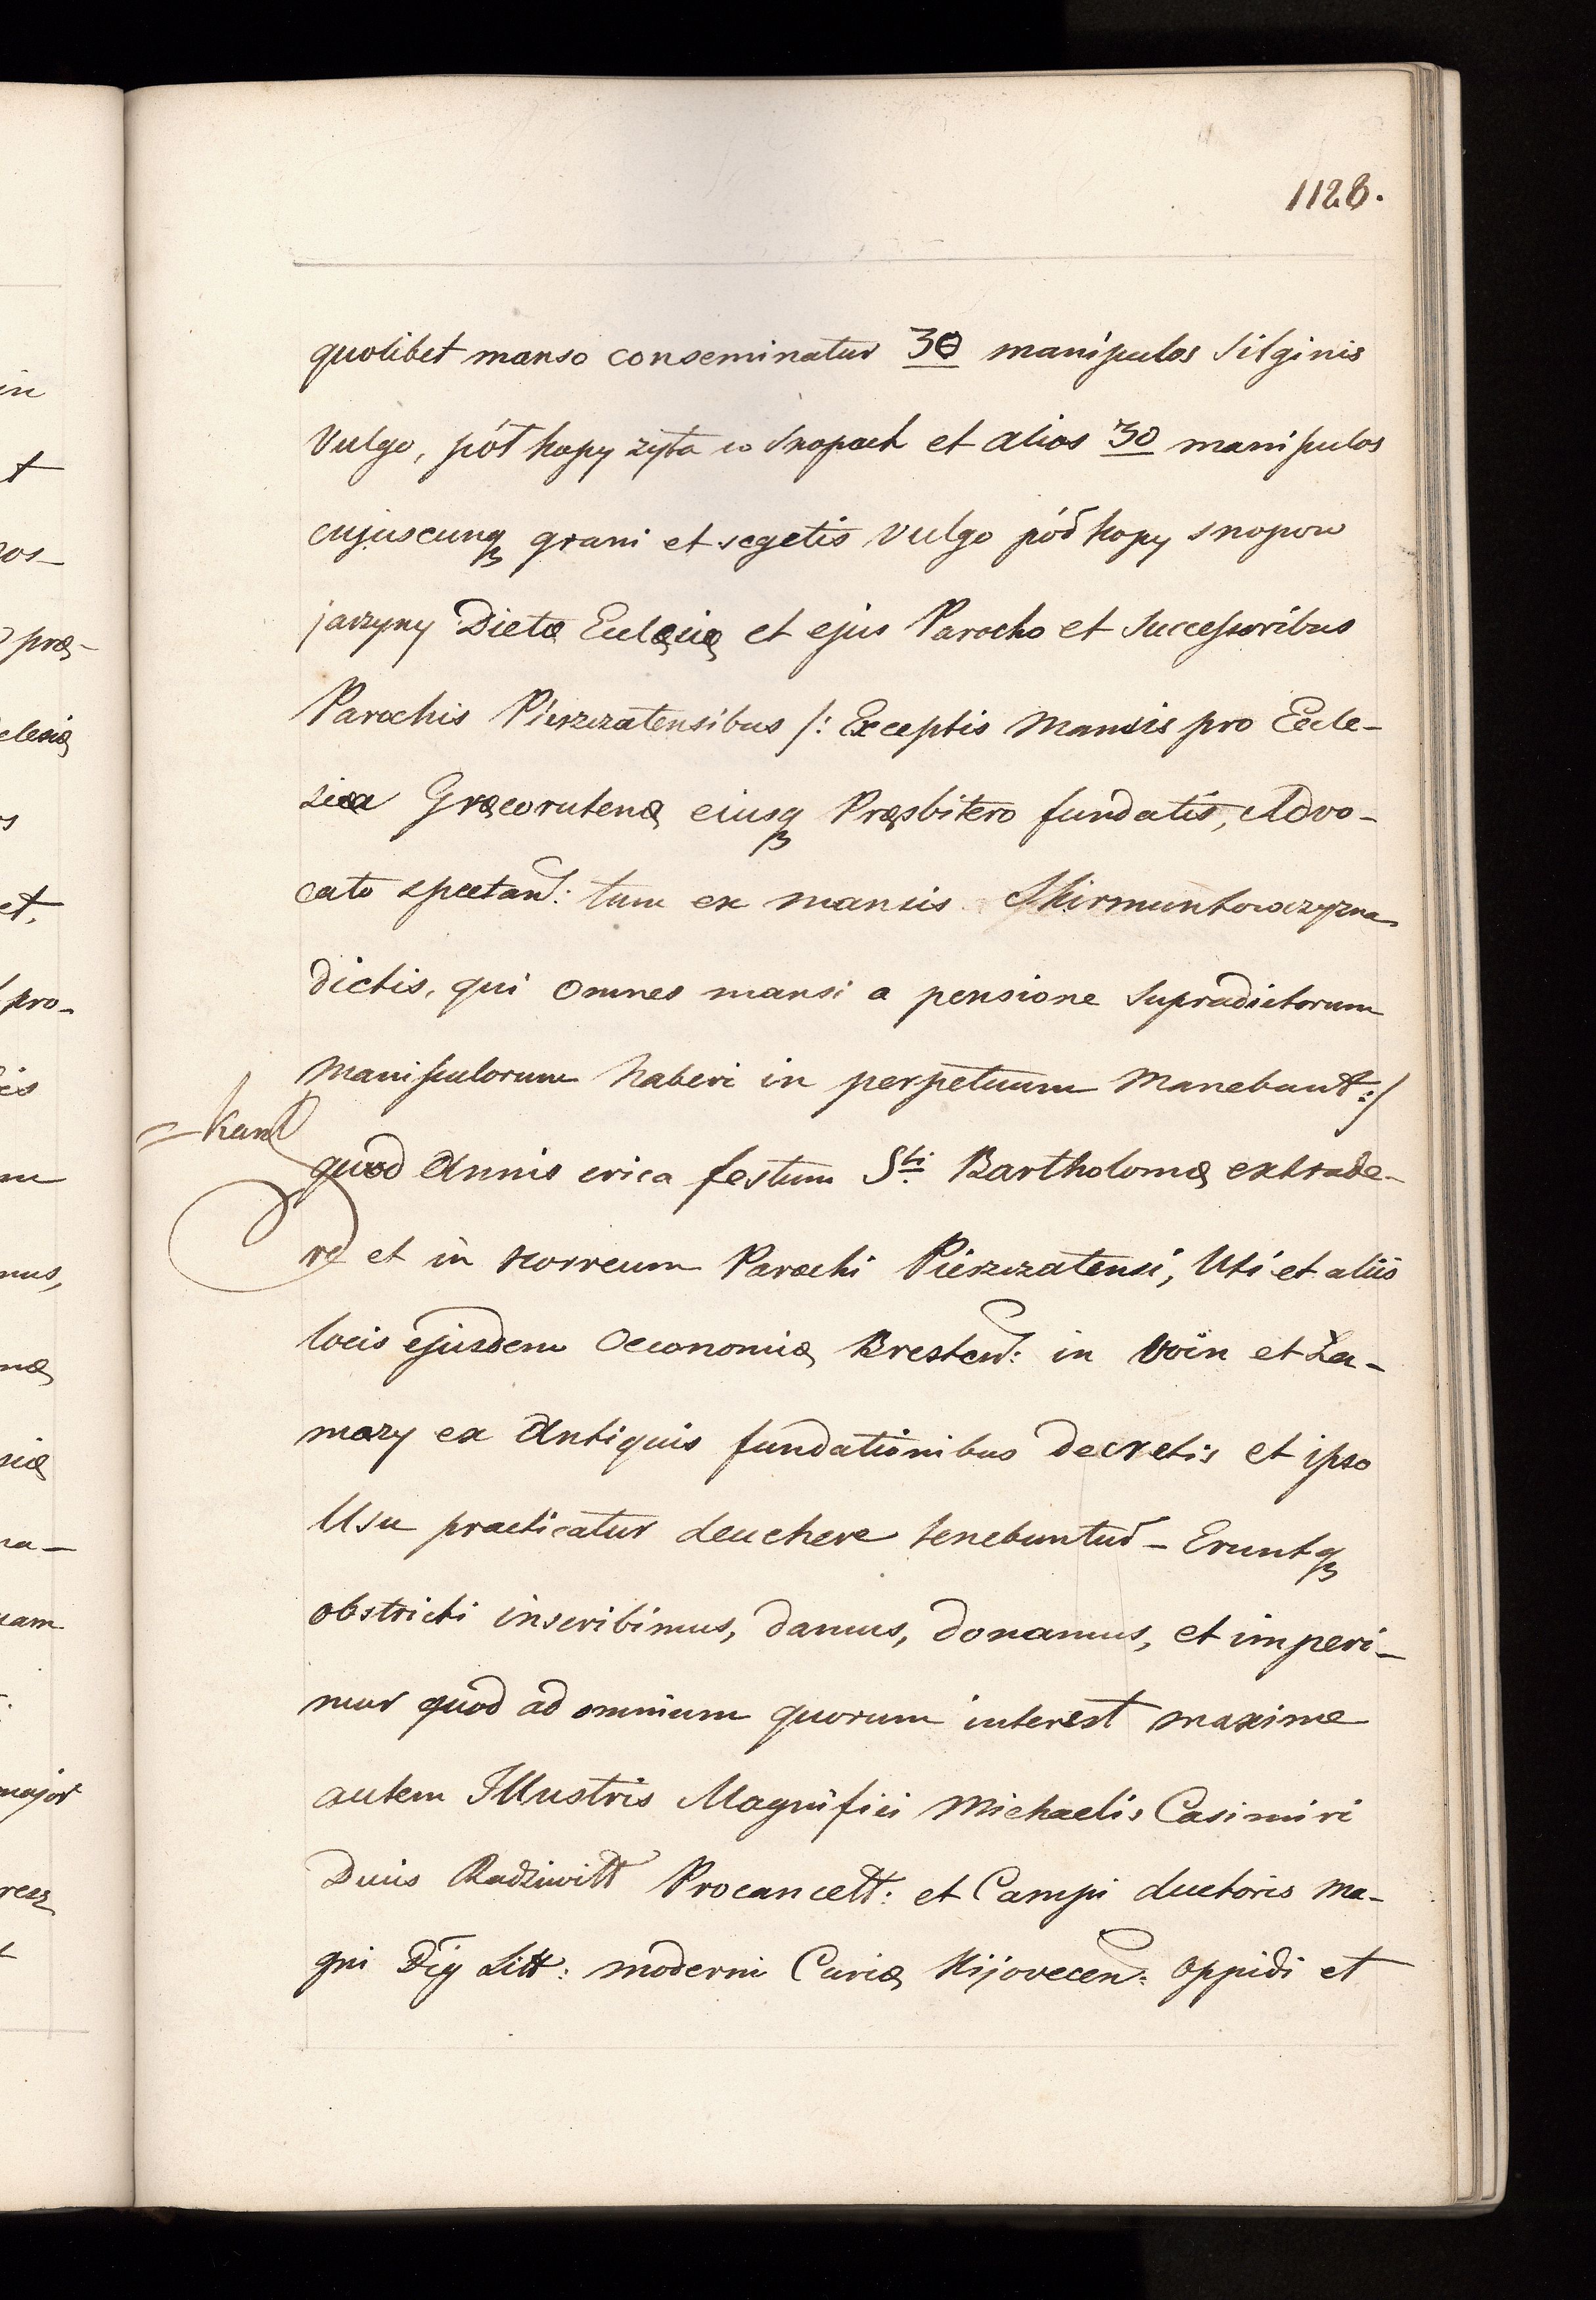 1128.
quolibet manso conseminatur 30 manipulos Silginis
Vulgo, pół kopy zyta w Snopach et alios 30 manipulos
cujuscunq grani et segetis vulgo pół kopy snopow
jarzyny Dictæ Eccleæsiæ et ejus Parocho et Successoribus
Parochis Pieszczatensibus /: Exceptis Mansis pro Eccle-
siæ Græcorutenæ eiusq Præsbitero fundatis, Advo-
cato spectan: tum ex mansis Skirmuntowszyzna
dictis, qui omnes mansi a pensione Supradictorum
Manipulorum haberi in perpetuum Manebunt :/
= Kant
quod Annis circa festum Sti Bartholomæ extrade-
re et in Horreum Parochi Pieszczatensi, Uti et aliis
locis ejusdem Oeconomiæ Bresten: in Woin et Ło-
mazy ex Antiquis fundationibus decretis et ipso
Usu practicatur deuchere tenebuntur - Eruntq
obstricti inscribimus, damus, donamus, et imperi-
mur quod ad omnium quorum interest maxime
autem Illustris Magnifici Michaelis Casimiri
Ducis Radziwiłł Procancell: et Campi ductoris Ma-
gni D[...] Litt: moderni Curiæ Kijovecen: Oppidi et
in
t
os-
præ-
clesiæ
s
et,
pro-
is
m
mus,
næ
siæ
na-
uam
major
resz
t